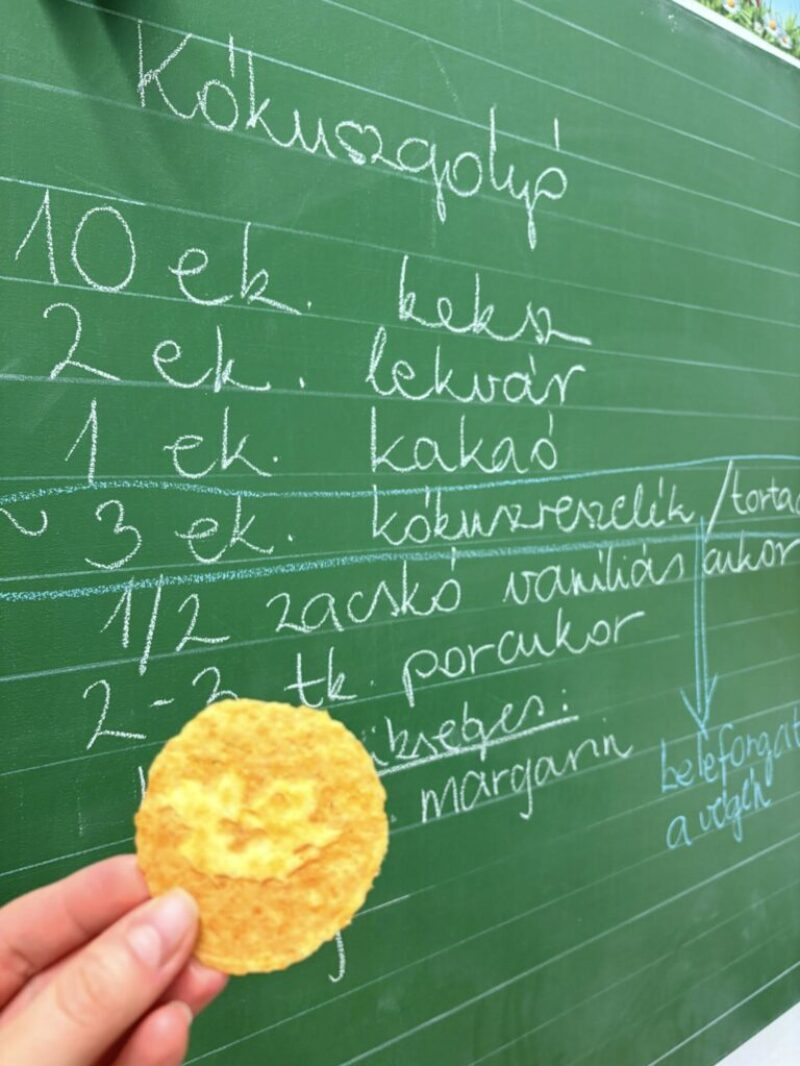 Kókuszgolyó
10 ek. keksz
2 ek. lekvár
1 ek. kakaó
3 ek. kókuszreszelék /torta
1/2 zacskó vaníliás cukor
2-3 tk. porcukor
margarin
beleforgat
a végén